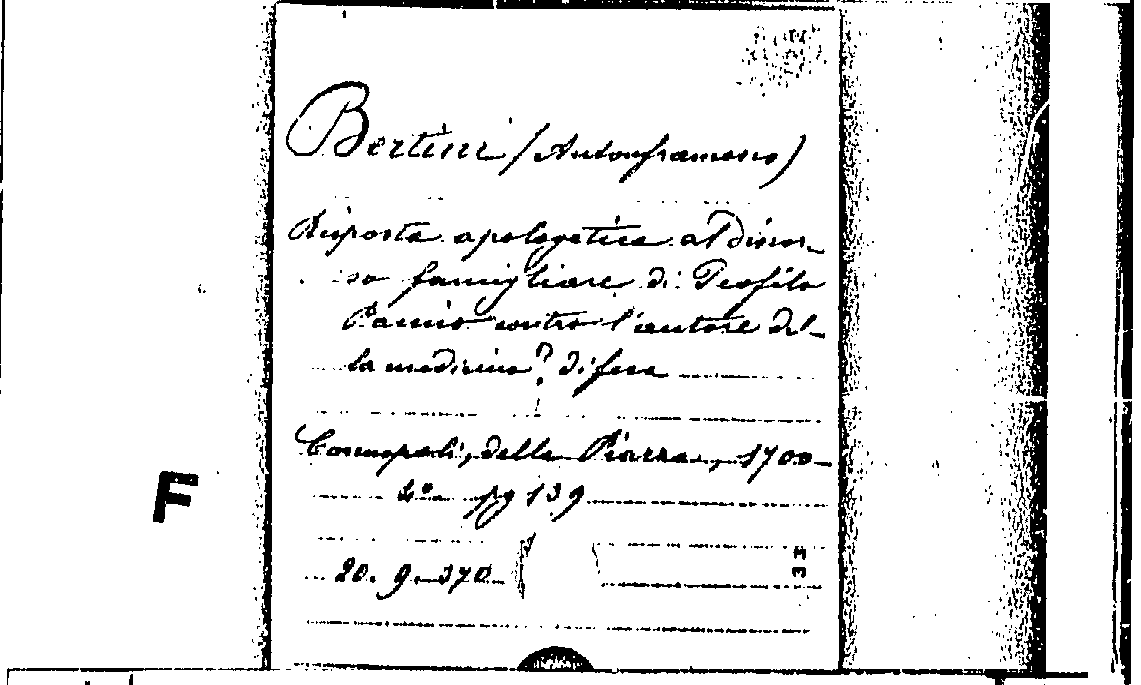 Bertini (Antonfrancesco)
Risposta apologetica al Discor-
so famigliare di Teofilo
Pamio contro l'autore del-
la medicina difesa
Cosmopoli, della Piazza, 1700
4º pg 139
20. 9. 370
F
33